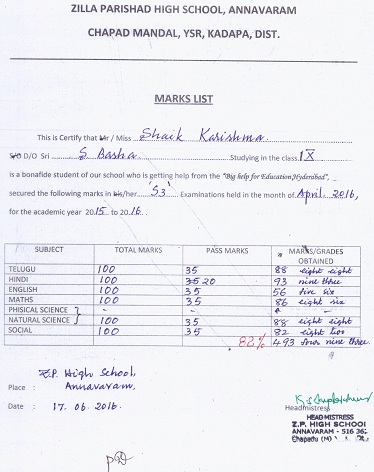 ZILLA PARISHAD HIGH SCHOOL, ANNAVARAM
CHAPAD MANDAL, YSR, KADAPA, DIST.
MARKS LIST
This is Certify that Mr / Miss Shaik Karishma
S/O D/O Sri S. Basha Studying in the class IX
is a bonafide student of our school who is getting help from the "Big help for Education, Hyderabad",
secured the following marks in his/her 'S3' Examinations held in the month of April 2016,
for the academic year 2015 to 2016.
SUBJECT TOTAL MARKS PASS MARKS MARKS/GRADES OBTAINED
TELUGU 100 35 88 eight eight
HINDI 100 35 20 93 nine three
ENGLISH 100 35 56 five six
MATHS 100 35 86 eight six
PHISICAL SCIENCE } - - -
NATURAL SCIENCE } 100 35 88 eight eight
SOCIAL 100 35 82 eight two
82% 493 four nine three
Z.P. High School,
Place : Annavaram,
Date : 17.06.2016.
Headmistress
HEAD MISTRESS
Z.P. HIGH SCHOOL
ANNAVARAM - 516 362
Chapadu (M)